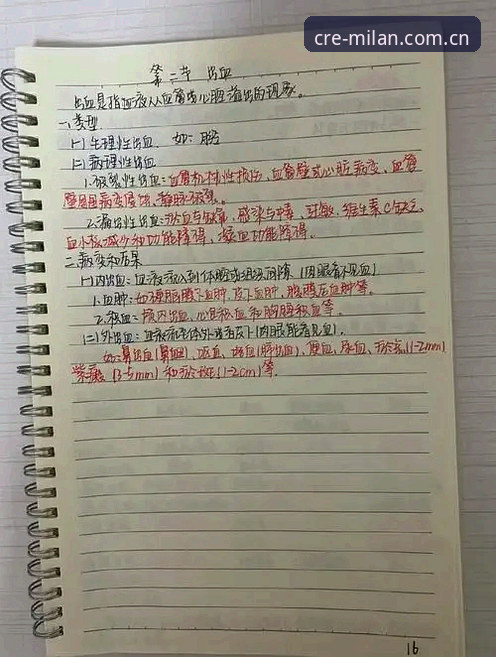 cre-milan.com.cn
第二节 出血
出血是指血液从血管或心腔溢出的现象。
一.类型
(一)生理性出血 如:
(二)病理性出血
1.破裂性出血:血管机械性损伤,血管壁或心脏病变,血管
壁周围病变侵蚀,静脉破裂。
2.漏出性出血:淤血与缺氧,感染与中毒,过敏,维生素C缺乏,
血小板减少和功能障碍,凝血功能障碍。
二.病变和后果
(一)内出血:血液流入到体腔或组织间隙(肉眼看不见血)
1.血肿:如硬脑膜下血肿 皮下血肿,腹膜后血肿等。
2.积血:颅内出血,心包积血和胸腔积血等。
(二)外出血:血液流至体外或者皮下(肉眼能看见血).
如:鼻出血(鼻衄),咯血,呕血(),便血,尿血,淤点(1-2mm)
紫癜(3-5mm)和淤斑(1-2cm)等.
16